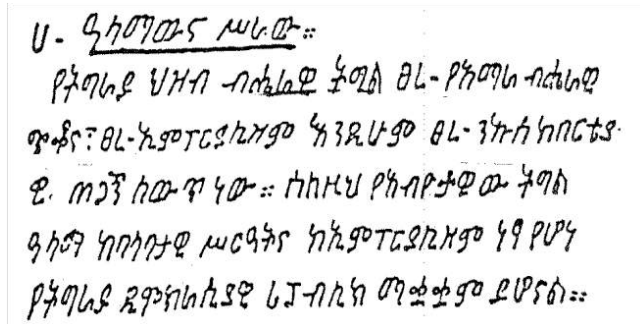 ሀ- ዓላማውና ሥራው።
የትግራይ ህዝብ ብሔራዊ ትግል ፀረ-የአማራ ብሔራዊ
ጭቆና፣ ፀረ-ኢምፐርያሊዝም እንዲሁም ፀረ-ንኡስ ከበርቴያ
ዊ ጠጋኝ ለውጥ ነው። ስለዚህ የአብዮታዊው ትግል
ዓላማ ከባላባታዊ ሥርዓትና ከኢምፐርያሊዝም ነፃ የሆነ
የትግራይ ዲሞክራሲያዊ ሪፓብሊክ ማቋቋም ይሆናል።